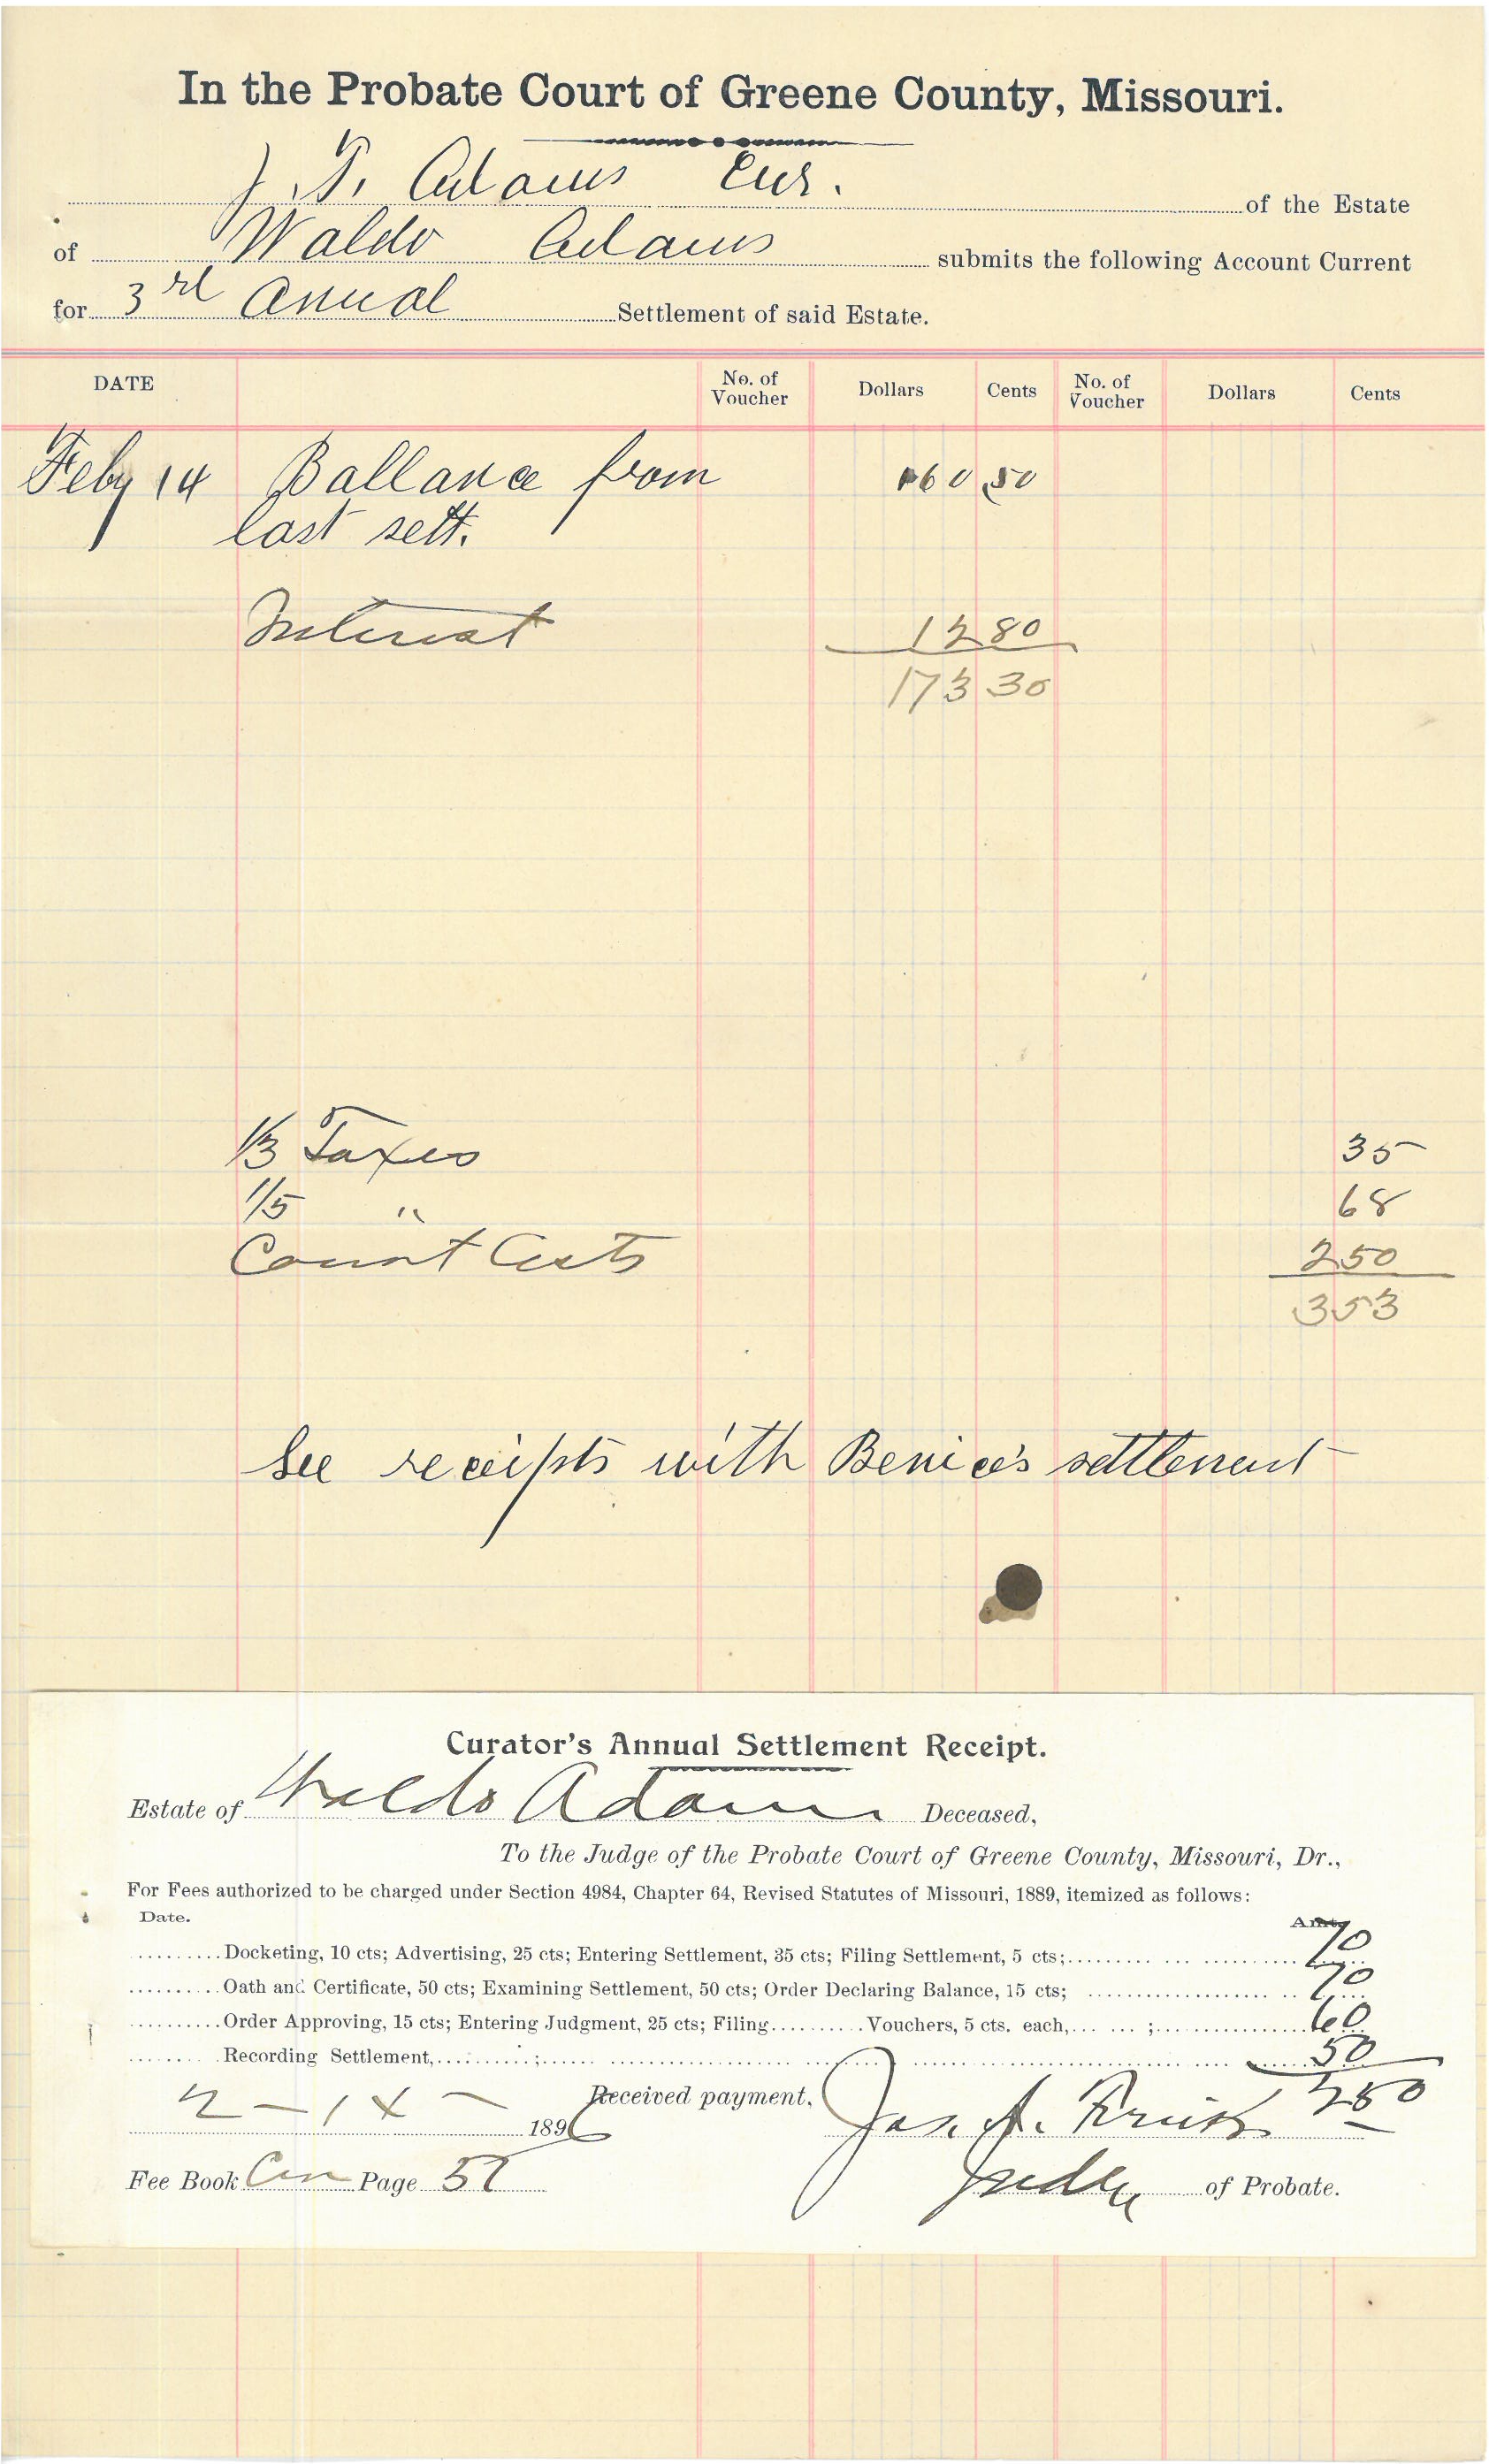 In the Probate Court of Greene County, Missouri.
J. P. Adams Cur. of the Estate
of Waldo Adams submits the following Account Current
for 3rd Anual Settlement of said Estate.
DATE No. of Voucher Dollars Cents No. of Voucher Dollars Cents
Feby 14 Ballance from 160 50
last sett.
Interest 12 80
173 30
1/3 Taxes 35
1/5 " 68
Court Costs 2 50
3 53
See receipts with Benice's settlement
Curator's Annual Settlement Receipt.
Estate of Waldo Adams Deceased,
To the Judge of the Probate Court of Greene County, Missouri, Dr.,
For Fees authorized to be charged under Section 4984, Chapter 64, Revised Statutes of Missouri, 1889, itemized as follows:
Date. Amt.
Docketing, 10 cts; Advertising, 25 cts; Entering Settlement, 35 cts; Filing Settlement, 5 cts; 70
Oath and Certificate, 50 cts; Examining Settlement, 50 cts; Order Declaring Balance, 15 cts; 70
Order Approving, 15 cts; Entering Judgment, 25 cts; Filing Vouchers, 5 cts. each, ; 60
Recording Settlement, ; 50
2 50
2-14- 1896 Received payment, Jas. J.
Fee Book Page 57 Judge of Probate.